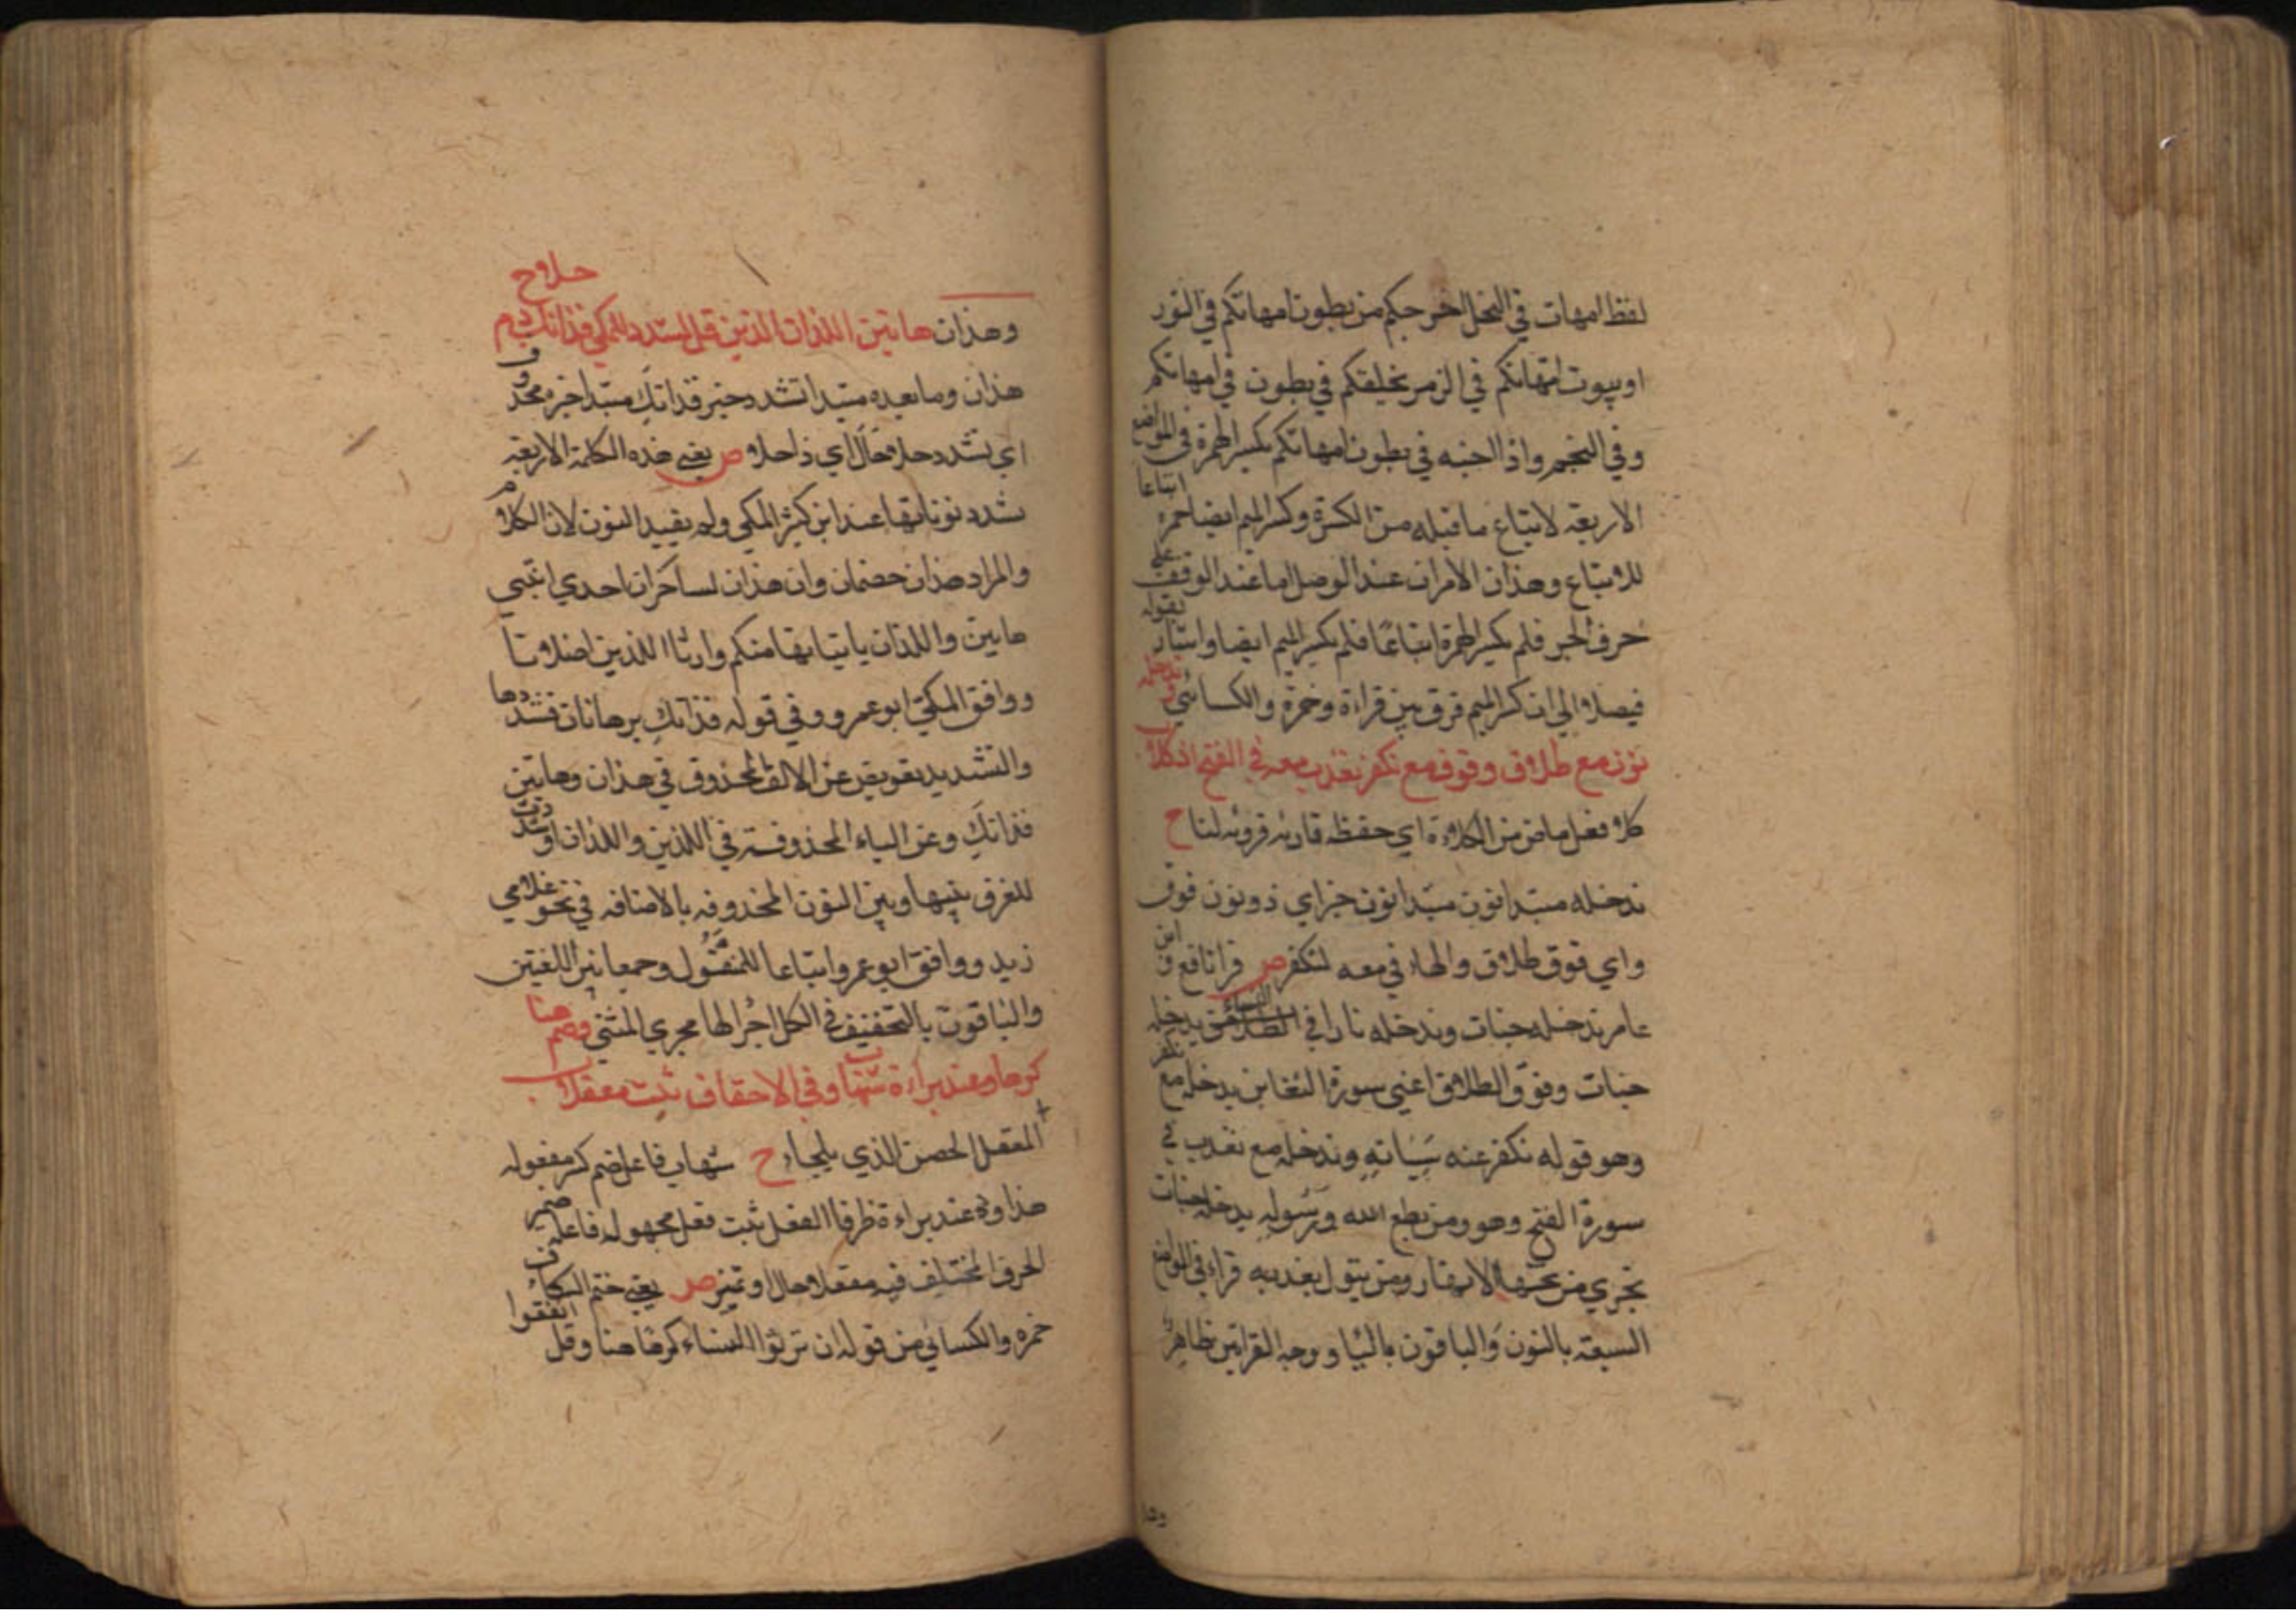 لفظ امهات في النحل اخرجكم من بطون امهاتكم في النور
او بيوت امهاتكم في الزمر يخلقكم في بطون في امهاتكم
وفي النجم واذ اجنه في بطون امهاتكم بكسر الهمزة في المواضع
الاربعة لاتباع ما قبله من الكسرة وكسر الميم ايضا حمزه اتباعا
للاتباع وهذان الامران عند الوصل اما عند الوقف على
حرف الجر فلم يكسر الهمزة اتباعًا فلم يكسر الميم ايضا واشار بقوله
فيصلا الي ان كسر الميم فرق بين قراءة وحمزة والكسائي وندخله
نون مع طلاق وفوق مع نكفر نعذب معه في الفتح اذ كلا
كلا فعل ماض من الكلاءة اي حفظه قارئه فرويه لنا ح
ندخله مبتدا نون مبتدا نون خبر اي ذو نون فوق
واي فوق طلاق والهاء في معه لنكفر ص قرا نافع وابن
عامر ندخله جنات وندخله نارا في النساء وفي الطلاق يدخله
جنات وفوق الطلاق اعني سورة التغابن يدخله مع نكفر
وهو قوله نكفر عنه سيئاته وندخله مع نعذب في
سورة الفتح وهو ومن يطع الله ورسوله يدخله جنات
تجري من تحتها الانهار ومن يتول يعذبه قراء في المواضع
السبعة بالنون والباقون بالياء ووجه القراتين ظاهر
وهذان هاتين اللذان الذين قل يشدد للمكي فذانك دم حلا ح
هذان وما بعده مبتدا تشدد خبر فذانك مبتدا خبره محذوف
اي تشدد حلا حال اي ذا حلا ص يعني هذه الكلمة الاربعة
شدد نوناتها عند ابن كثير المكي ولم يقيد النون لان الكلام
والمراد هذان خصمان وان هذان لساحران احدي ابنتي
هاتين واللذان ياتيانها منكم وارنا اللذين اضلانا
ووافق المكي ابو عمرو وفي قوله فذانك برهانان فشددها
والتشديد تعويض عن الالف المحذوف في هذان وهاتين
فذانك وعن الياء المحذوفة في اللذين واللذان او شددت
للفرق بينها وبين النون المحذوفه بالاضافه في نحو غلامي
زيد ووافق ابو عمرو اتباعا للمنقول وجمعا بين اللغتين
والباقون بالتخفيف في الكل اجرالها مجري المثني وضم هنا
كرها وعند براءة شهاب وفي الاحقاف ثبت معقلا
المعقل الحصن الذي يلجاء ح شهاب فاعل ضم كرها مفعوله
هذا وعند براءة ظرفا الفعل ثبت فعل مجهول فاعله ضمير
الحرف المختلف فيه معقلا حال او تميز ص يعني ضم الكاف
حمزه والكسائي من قوله ان ترثوا النساء كرها هنا وقل انفقوا